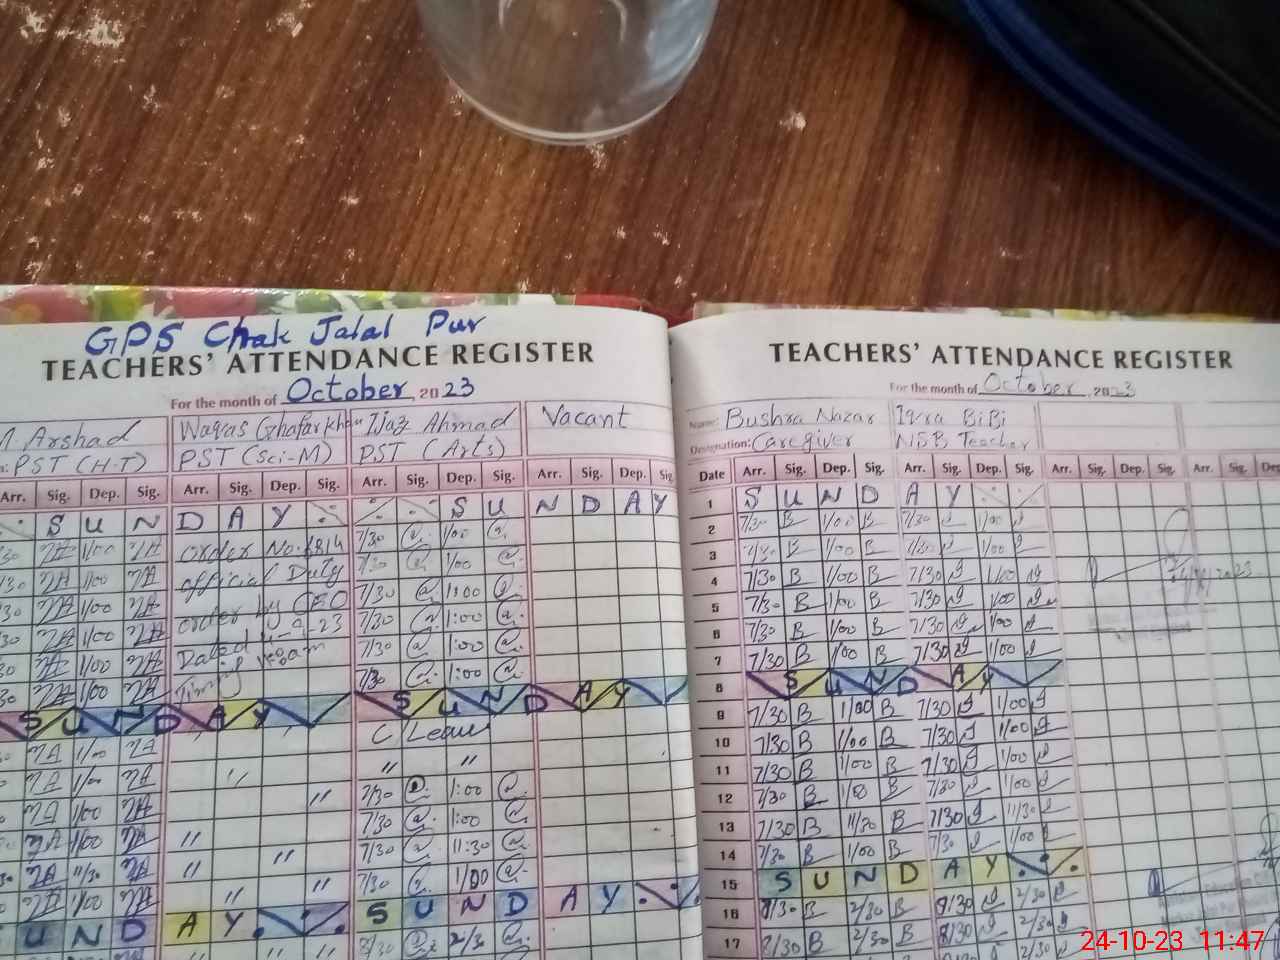 GPS Chak Jalal Pur
TEACHERS' ATTENDANCE REGISTER
For the month of October, 2023
M. Arshad Waqas Ghafar khan Ijaz Ahmad Vacant
PST (H-T) PST (Sci-M) PST (Arts)
Arr. Sig. Dep. Sig. Arr. Sig. Dep. Sig. Arr. Sig. Dep. Sig. Arr. Sig. Dep. Sig.
S U N D A Y S U N D A Y
order No: 6814 7/30 1/00
official Duty 7/30 1:00
order by CEO 7/30 1:00
Dated 4-9-23 7/30 1:00
Timing 7/30 1:00
S U N D A Y S U N D A Y
1/00 C/Leave
1/00 " " "
1/00 " 7/30 1:00
1/00 7/30 1:00
11/30 " " 7/30 11:30
1/00 " " 7/30 1/00
U N D A Y S U N D A Y
" " 8/30 2/30
TEACHERS' ATTENDANCE REGISTER
For the month of October, 2023
Name: Bushra Nazar Iqra BiBi
Designation: Caregiver NSB Teacher
Date Arr. Sig. Dep. Sig. Arr. Sig. Dep. Sig. Arr. Sig. Dep. Sig. Arr. Sig. Dep.
1 S U N D A Y
2 7/30 B 1/00 B 7/30 1/00
3 7/30 B 1/00 B 7/30 1/00
4 7/30 B 1/00 B 7/30 1/00
5 7/30 B 1/00 B 7/30 1/00
6 7/30 B 1/00 B 7/30 1/00
7 7/30 B 1/00 B 7/30 1/00
8 S U N D A Y
9 7/30 B 1/00 B 7/30 1/00
10 7/30 B 1/00 B 7/30 1/00
11 7/30 B 1/00 B 7/30 1/00
12 7/30 B 1/00 B 7/30 1/00
13 7/30 B 11/30 B 7/30 11/30
14 7/30 B 1/00 B 7/30 1/00
15 S U N D A Y
16 8/30 B 2/30 B 8/30 2/30
17 8/30 B 2/30 B 8/30 2/30
24-10-23 11:47